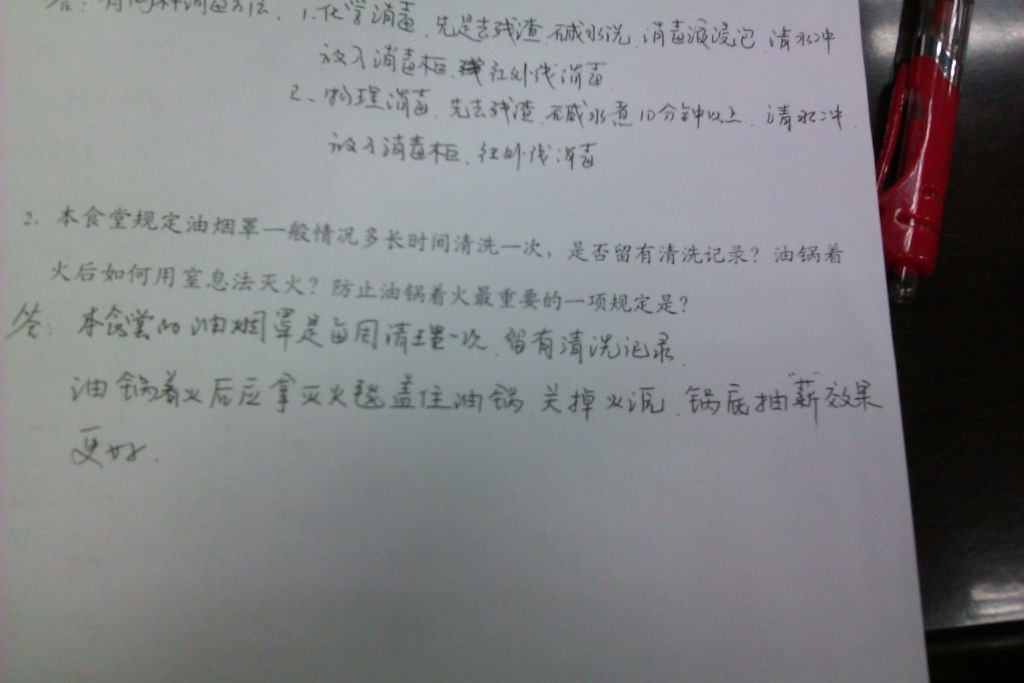 答：有两种消毒方法．1.化学消毒．先是去残渣．碱水洗．消毒液浸泡．清水冲
放入消毒柜．红外线消毒
2、物理消毒．先去残渣．碱水煮10分钟以上．清水冲．
放入消毒柜．红外线消毒
2. 本食堂规定油烟罩一般情况多长时间清洗一次，是否留有清洗记录？油锅着
火后如何用窒息法灭火？防止油锅着火最重要的一项规定是？
答：本食堂的油烟罩是每周清理一次．留有清洗记录．
油锅着火后应拿灭火毯盖住油锅．关掉火源．锅底抽"薪"效果
更好．